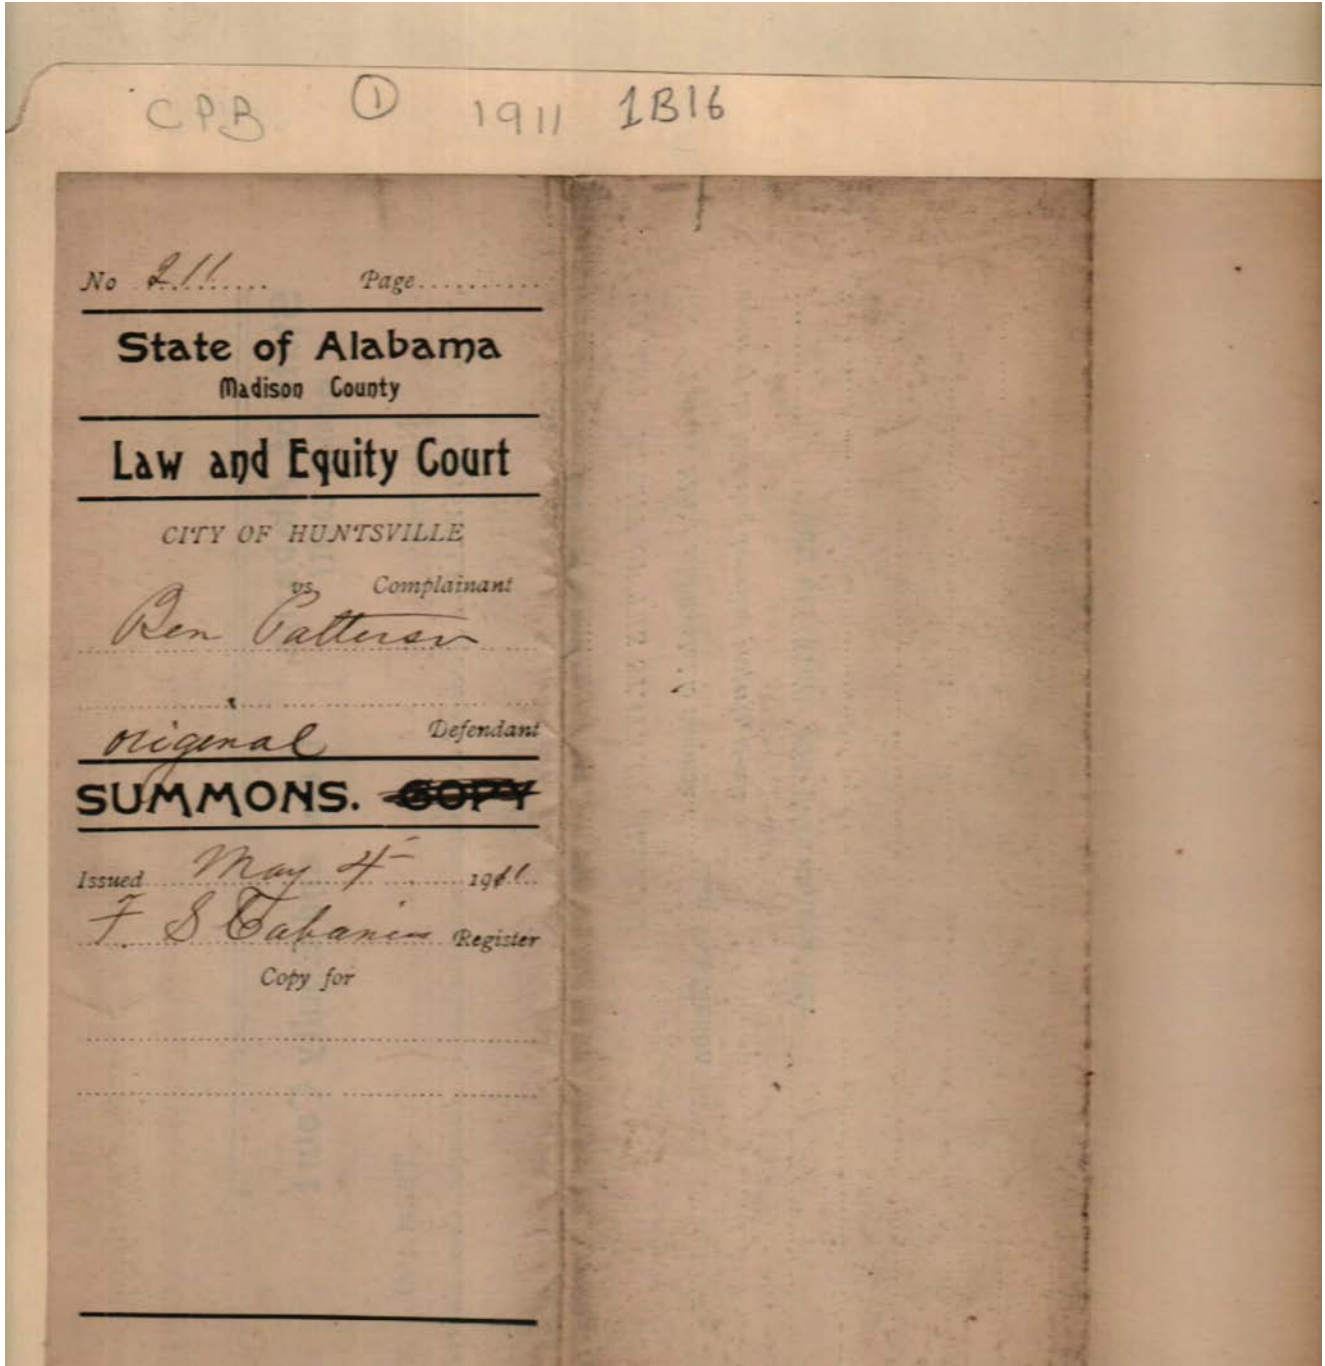 CPB ① 1911 1B16
No 211 Page
State of Alabama
Madison County
Law and Equity Court
CITY OF HUNTSVILLE
vs. Complainant
Ben Patterson
Defendant
origenal
SUMMONS. COPY
Issued May 4 1911
F. S. Tabanis Register
Copy for